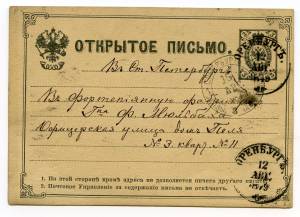 ОТКРЫТОЕ ПИСЬМО.
Въ Ст. Петербургъ
Въ Фортепіянную фабрику
Гна Ф. Мюльбаха
Офицерская улица домъ
№ 3. кварт. № 11
1. — На этой сторонѣ кромѣ адреса не дозволяется ничего другаго
2. — Почтовое Управленіе за содержаніе письма не отвѣчаетъ.
ОРЕНБУРГЪ.
12
АВГ.
1879
ОРЕНБУРГЪ.
12
АВГ.
1879